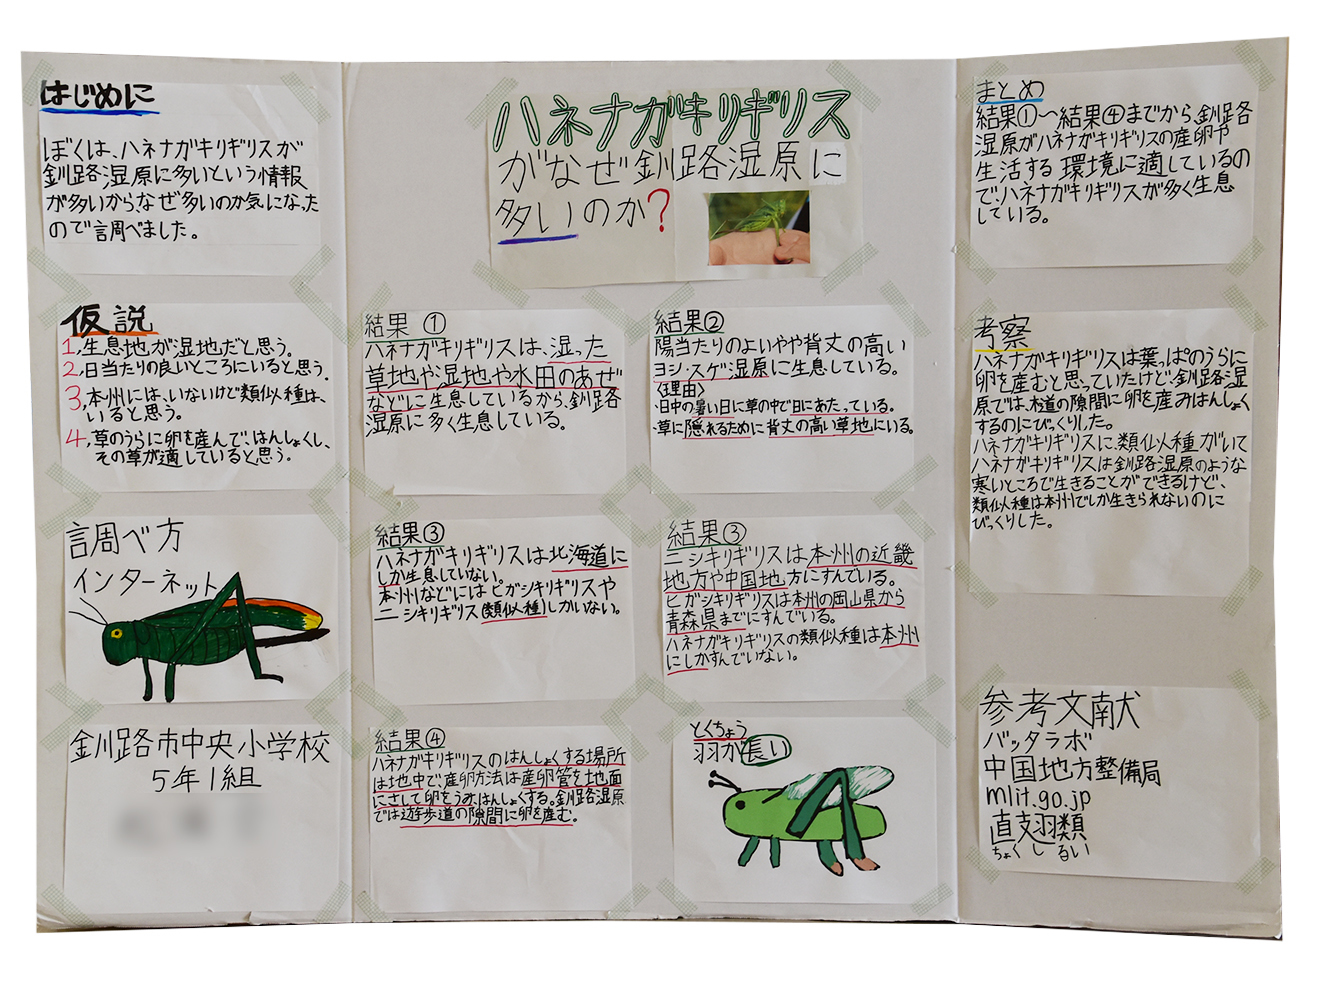 はじめに
ぼくは、ハネナガキリギリスが
釧路湿原に多いという情報
が多いからなぜ多いのか気になった
ので調べました。
仮説
1,生息地が湿地だと思う。
2,日当たりの良いところにいると思う。
3,本州には、いないけど類似種は、
いると思う。
4,草のうらに卵を産んで、はんしょくし、
その草が適していると思う。
調べ方
インターネット
釧路市中央小学校
5年1組
ハネナガキリギリス
がなぜ釧路湿原に
多いのか?
結果 ①
ハネナガキリギリスは、湿った
草地や湿地や水田のあぜ
などに生息しているから、釧路
湿原に多く生息している。
結果②
陽当たりのよいやや背丈の高い
ヨシ・スゲ湿原に生息している。
〈理由〉
・日中の暑い日に草の中で日にあたっている。
・草に隠れるために背丈の高い草地にいる。
結果③
ハネナガキリギリスは北海道に
しか生息していない。
本州などにはヒガシキリギリスや
ニシキリギリス(類似種)しかいない。
結果③
ニシキリギリスは本州の近畿
地方や中国地方にすんでいる。
ヒガシキリギリスは本州の岡山県から
青森県までにすんでいる。
ハネナガキリギリスの類似種は本州
にしかすんでいない。
結果④
ハネナガキリギリスのはんしょくする場所
は地中で、産卵方法は産卵管を地面
にさして卵をうみ、はんしょくする。釧路湿原
では遊歩道の隙間に卵を産む。
とくちょう
羽が長い
まとめ
結果①〜結果④までから、釧路
湿原がハネナガキリギリスの産卵や
生活する環境に適しているの
で、ハネナガキリギリスが多く生息
している。
考察
ハネナガキリギリスは葉っぱのうらに
卵を産むと思っていたけど、釧路湿
原では、木道の隙間に卵を産みはんしょく
するのにびっくりした。
ハネナガキリギリスに、類似種がいて
ハネナガキリギリスは釧路湿原のような
寒いところで生きることができるけど、
類似種は本州でしか生きられないのに
びっくりした。
参考文献
バッタラボ
中国地方整備局
mlit.go.jp
直翅類
ちょくしるい